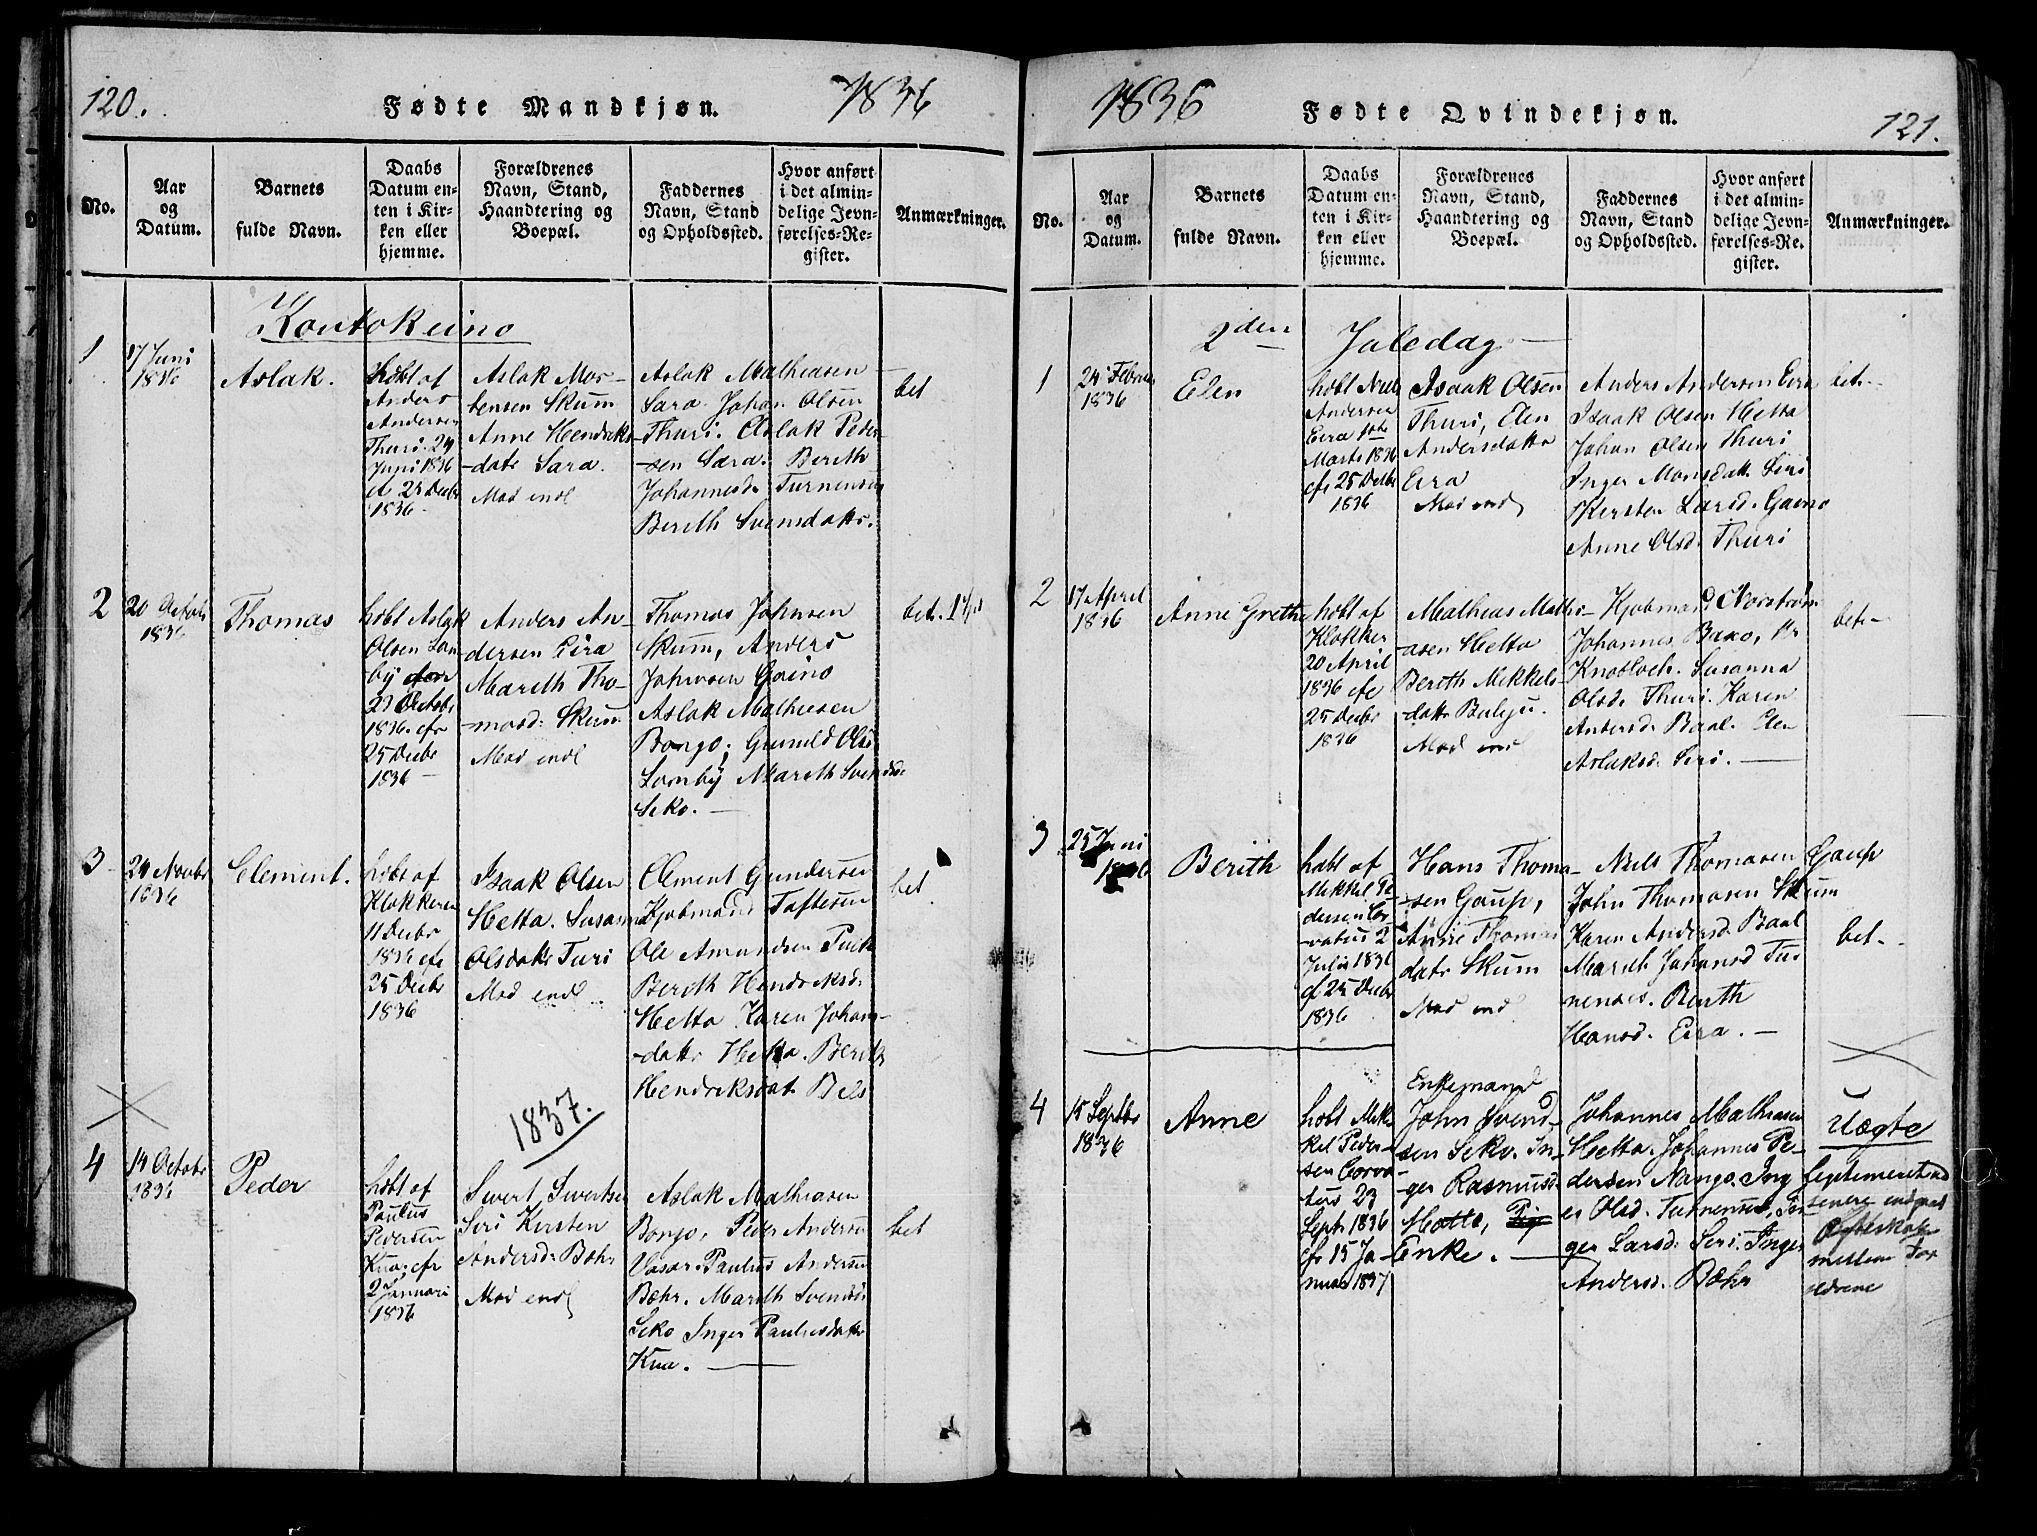 120.
Fødte Mandkjøn.
1836
No.
Aar
og
Datum.
Barnets
fulde Navn.
Daabs
Datum en-
ten i Kir-
ken eller
hjemme.
Forældrenes
Navn, Stand,
Haandtering og
Boepæl.
Faddernes
Navn, Stand
og Opholdssted.
Hvor anført
i det almin-
delige Jevn-
førelses-Re-
gister.
Anmærkninger.
Koutokeino
1
17 Juni
1836
Aslak.
høbt af
Anders
Andersen
Thuri. 24
Juni 1836
cf 25 Decbr
1836
Aslak Mor-
tensen Skum
Anne Hendriks
-datr Sara.
Mod endl
Aslak Mathiesen
Sara. Johan Olsen
Thuri. Aslak Peder-
-sen Sara. Berith
Johannesdr Turnensen
Berith Svensdatr.
bet
2
20 Octobr
1836
Thomas
høbt Aslak
Olsen Lom-
by
23 Octobr
1836. cfr
25 Decbr
1836
Anders An-
dersen Eira
Marith Tho-
-masd: Skum
Mod endl
Thomas Johnsen
Skum, Anders
Johnsen Gaino
Aslak Mathiesen
Bongo. Gunild Olsd
Lomby Marith Svendsdr
Siko.
bet.
3
24 Novbr
1836
Clement.
høbt af
Klokkeren
11 Decbr
1836 cfr
25 Decbr
1836
Isaak Olsen
Hetta. Susanna
Olsdatr Turi
Mod endl
Clement Gundersen
Kjøbmand Toftesen
Ole Amundsen
Berith Hendriksd:
Hetta Karen Johans-
-datr Hetta. Berith
Hendriksdat Bels
bet
1837.
4
14 Octobr
1836
Peder
høbt af
Paulus
Pedersen
Knar cfr
2 Januari
1836
Sivert Sivertsen
Siri Kirsten
Andersd: Bæhr
Mod endl
Aslak Mathiasen
Bongo, Peder Andersen
Vasar. Paulus Andersen
Bæhr. Marith Svendsd
Siko Inger Paulusdatr
Knar.
bet
1836
Fødte Qvindekjøn.
121.
No.
Aar
og
Datum.
Barnets
fulde Navn.
Daabs
Datum en-
ten i Kir-
ken eller
hjemme.
Forældrenes
Navn, Stand,
Haandtering og
Boepæl.
Faddernes
Navn, Stand
og Opholdssted.
Hvor anført
i det almin-
delige Jevn-
førelses-Re-
gister.
Anmærkninger.
2den Juledag
1
24 Februar
1836
Elen
høbt Niels
Andersen
Eira 1ste
Marts 1836
cfr 25 Decbr
1836
Isaak Olsen
Thuri, Elen
Andersdatr
Eira
Mod endl
Anders Andersen Eira
Isaak Olsen Hetta
Johan Olsen Thuri
Inger Monsdatr Siri
Kersten Larsd. Gaino
Anne Olsd. Thuri
bet.
2
17 April
1836
Anne Grethe
høbt af
Klokker
20 April
1836 cfr
25 Decbr
1836
Mathias Mathi-
-asen Hetta
Berith Mikkels-
datr Buljo.
Mod endl
Kjøbmand Norstrøm
Johannes Baxo, Hr
Knobloch. Susanna
Olsdr Thuri. Karen
Andersd. Baal. Elen
Aslaksd. Siri.
bet.
3
25 Juni
1836
Berith
høbt af
Mikkel Pe-
dersen Cor-
-vatus 2
Julii 1836
cf 25 Decbr
1836
Hans Thoma-
-sen Gaup,
Anne Thomas
datr Skum
Mod endl
Niels Thomasen Gaup
John Thomasen Skum
Karen Andersd. Baal
Marith Johansd Tur
nensis. Berith
Hansd. Eira.
bet.
4
15 Septbr
1836
Anne
høbt Mik-
kel Peder-
sen Corva-
tus 23
Sept 1836
cfr 15 Ja-
nuar 1837
Enkemand
John Svend-
sen Siko. In-
-ger Rasmusd:
Motte,
Enke.
Johannes Mathiasen
Hetta. Johannes Pe-
dersen Nango. Ing
er Olsd. Turnensis, In-
ger Larsd: Siri. Inger
Andersd. Bæhr
Uægte
Legitimeret ved
senere indgaaet
Ægteskab
mellem For
ældrene